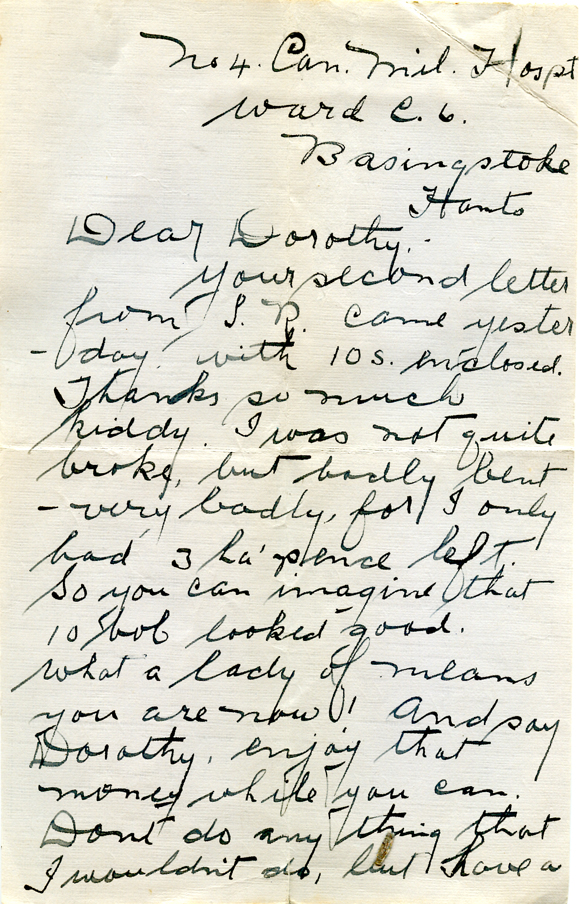 No 4. Can. Mil. Hospt
Ward C. 6.
Basingstoke
Hants
Dear Dorothy.-
Your second letter
from S. R. came yester
-day with 10 s. enclosed.
Thanks so much
kiddy. I was not quite
broke, but badly bent
- very badly, for I only
had 3 ha'pence left.
So you can imagine that
10 bob looked good.
What a lady of means
you are now! And say
Dorothy, enjoy that
money while you can.
Dont do any thing that
I wouldn't do, but have a